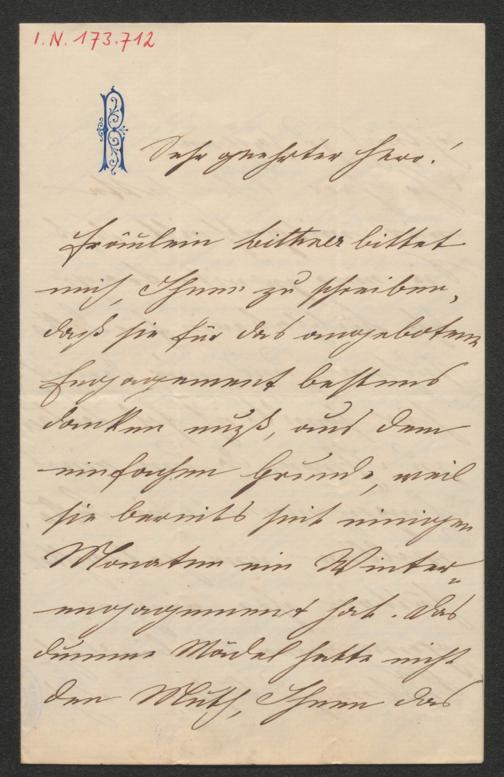 I.N. 173.712
R
Sehr geehrter Herr!
Fräulein Bittner bittet
mich, Ihnen zu schreiben,
daß sie für das angebotene
Engagement bestens
danken muß, aus dem
einfachen Grunde, weil
sie bereits seit einigen
Monaten ein Winter-
engagement hat. Das
dumme Mädel hatte nicht
den Muth, Ihnen das